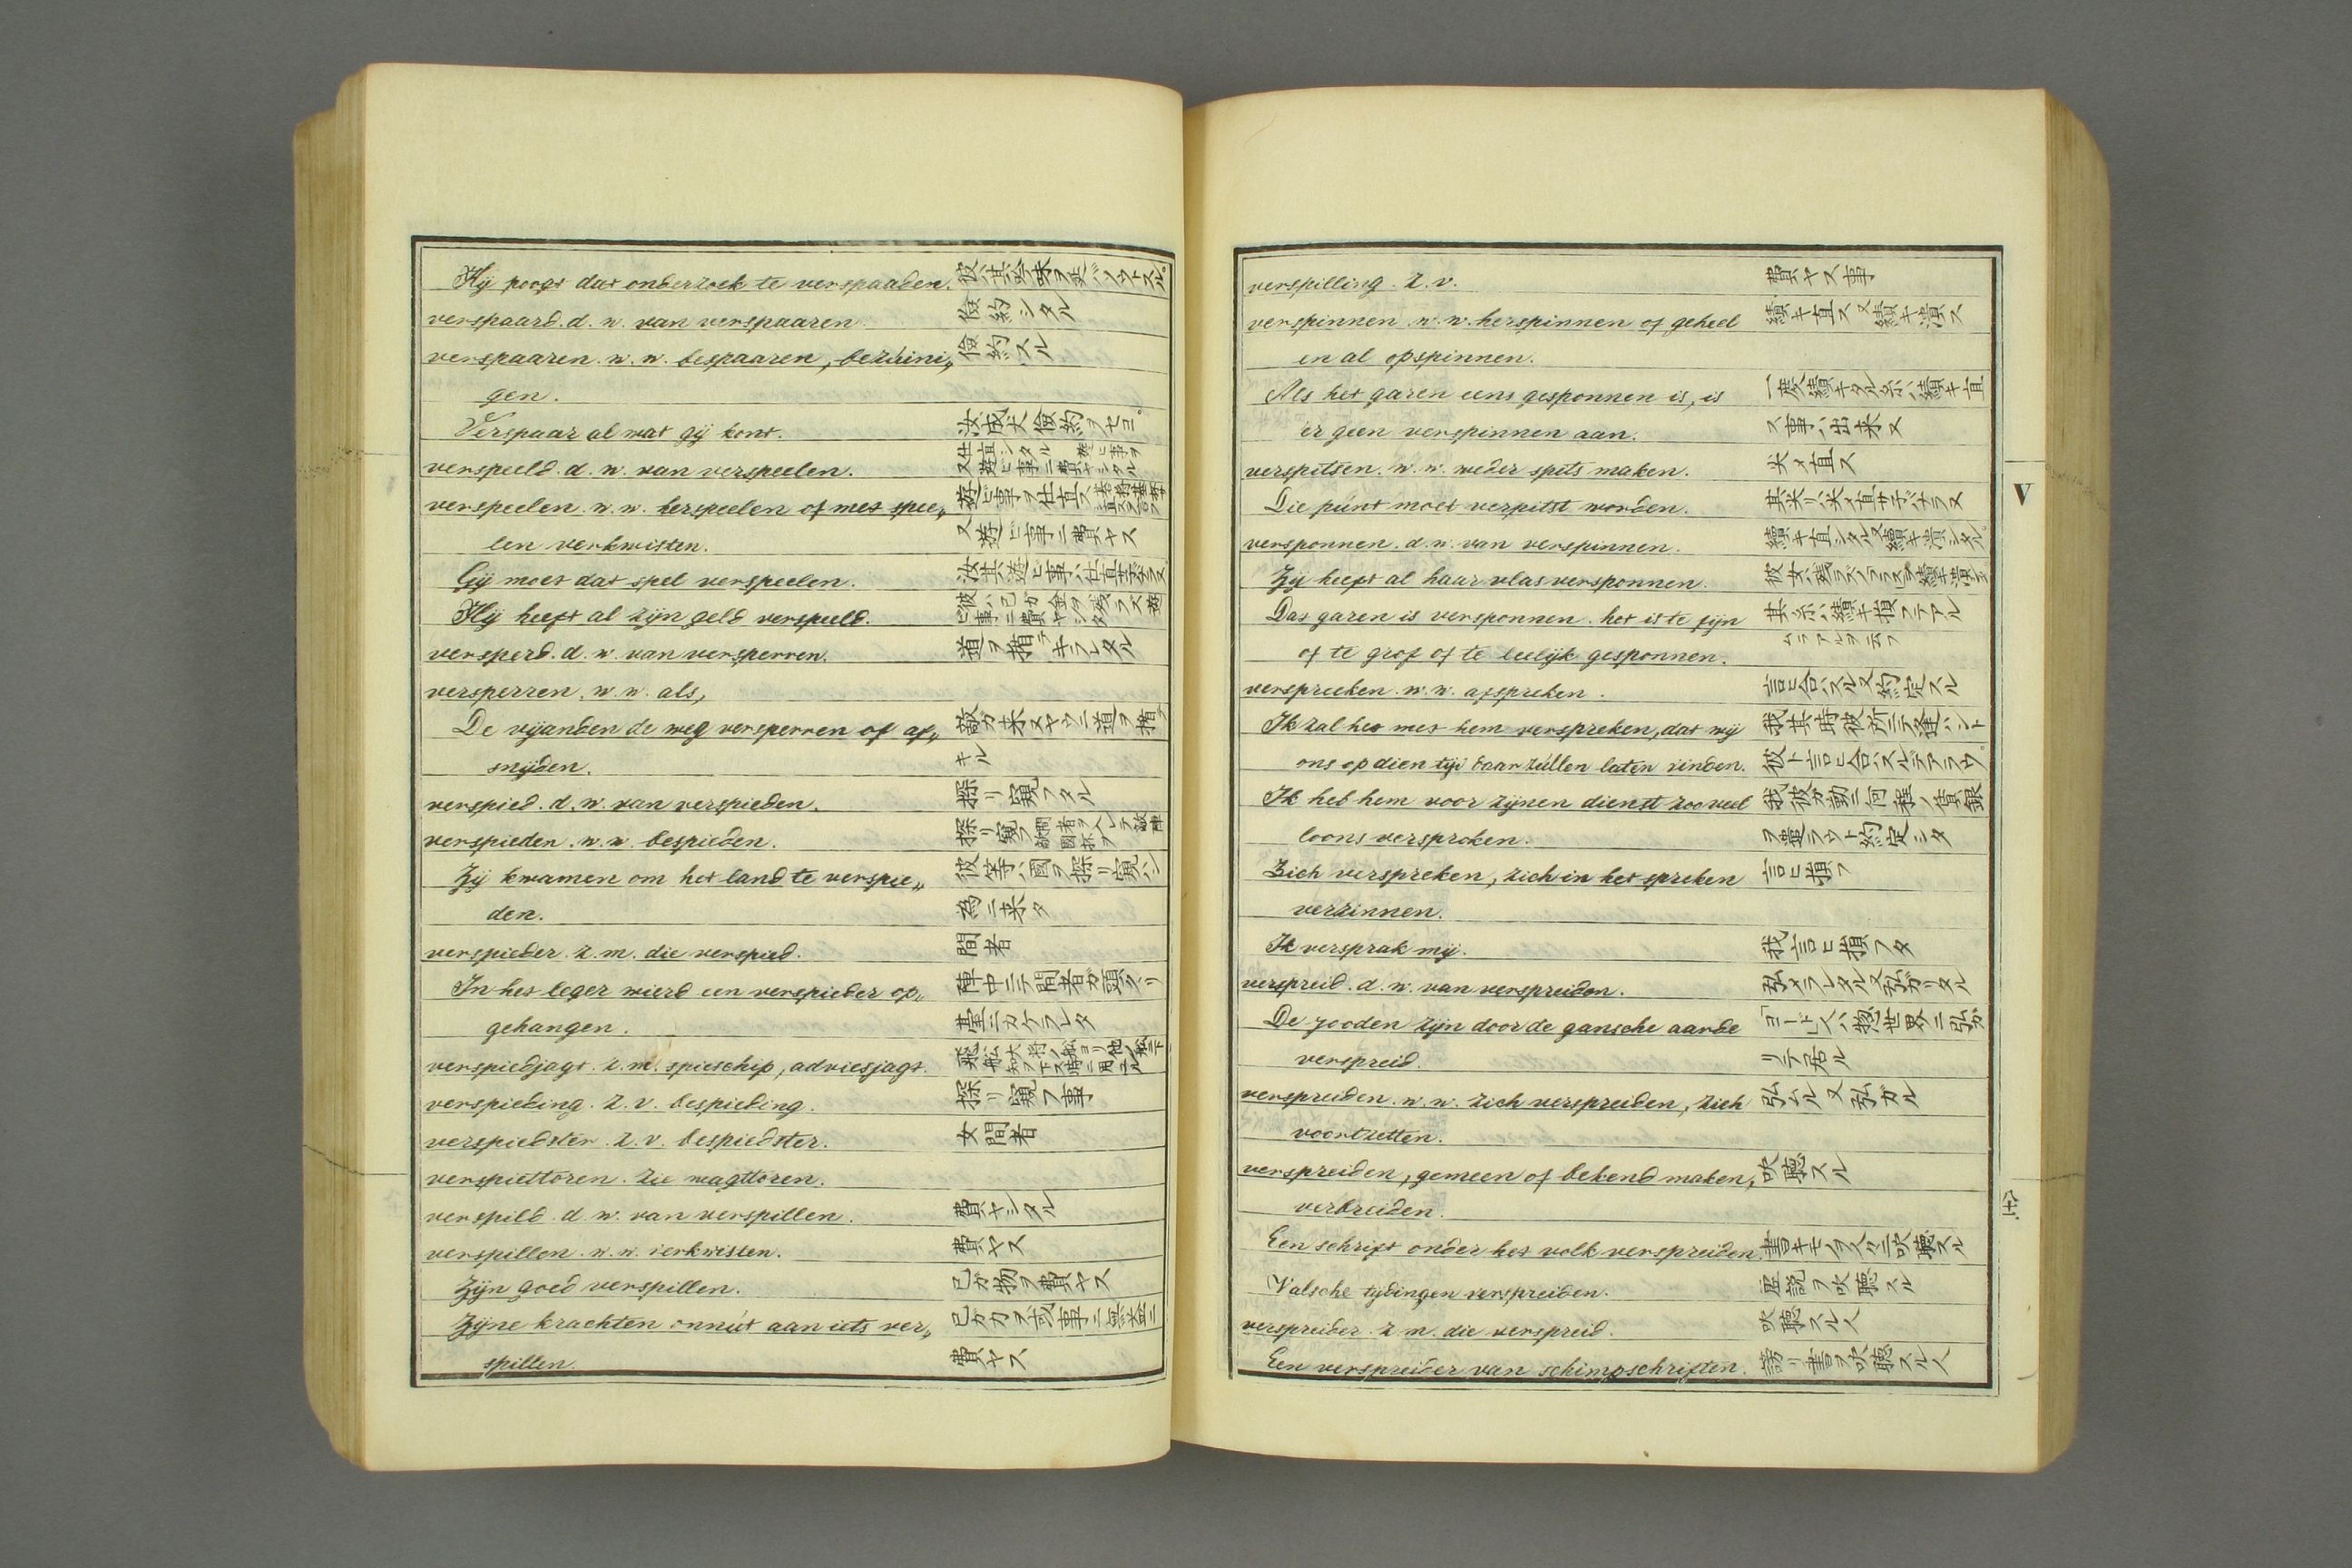 Hij poogt dat onderzoek te verspaaden.
verspaard. d. w. van verspaaren 儉約シタル
verspaaren. w. w. bespaaren, bezuini„ 儉約スル
gen.
Verspaar al wat gij kont. 汝成丈儉約ヲセヨ。
verspeeld. d. w. van verspeelen.
verspeelen. w. w. herspeelen of met spee„ 遊ビ事ヲ仕直ス
len verkwisten. 又遊ビ事ニ費ヤス
Gij moet dat spel verspeelen. 汝其遊ビ事ハ仕直サネバナラヌ
Hij heeft al zijn geld verspeeld.
versperd. d. w. van versperren.
versperren. w. w. als,
De vijanden de weg versperren of af„ 敵ガ来ヌヤウニ道ヲ
snijden. キル
verspied. d. w. van verspieden. 探リ窺フタル
verspieden. w. w. bespieden. 探リ窺フ
Zij kwamen om het land te verspie„ 彼等ハ國ヲ探リ窺ハン
den. 為ニ来タ
verspieder. z. m. die verspied. 間者
In het leger wierd een verspieder op„ 陣中ニテ間者ガ頭クヽリ
gehangen. 臺ニカケラレタ
verspiedjagt. z. m. spieschip, adviesjagt.
verspieding. z. v. bespieding. 探リ窺フ事
verspiedster. z. v. bespiedster. 女間者
verspiettoren. zie wagttoren.
verspild. d. w. van verspillen. 費ヤシタル
verspillen. w. w. verkwisten. 費ヤス
Zijn goed verspillen. 己ガ物ヲ費ヤス
Zijne krachten onnut aan iets ver„ 己ガ力ヲ或事ニ無益ニ
spillen. 費ヤス
verspilling. z. v. 費ヤス事
verspinnen. w. w. herspinnen of geheel 績キ直ス又績キ潰ス
en al opspinnen.
Als het garen eens gesponnen is, is 一度績キタル糸ハ績キ直
er geen verspinnen aan. ス事ハ出来ヌ
verspitsen. w. w. weder spits maken. 尖メ直ス
Die punt moet verspitst worden. 其尖リハ尖メ直サネバナラヌ
versponnen. d. w. van verspinnen. 績キ直シタル又績キ潰シタル。
Zij heeft al haar vlas versponnen.
Das garen is versponnen. het is te fijn 其糸ハ績キ損フテアル
of te grof of te leelijk gesponnen. ムラアルヲ云フ
verspreeken. w. w. afspreken. 言ヒ合ハスル又約定スル
Ik zal het met hem verspreken, dat wij 我其時彼所ニテ逢ハント
ons op dien tijd daar zullen laten vinden. 彼ト言ヒ合ハスルデアラウ。
Ik heb hem voor zijnen dienst zoo veel 我彼ガ勤ニ何程ノ賃銀
loons versproken. ヲ遣ラウト約定シタ
Zich verspreken, zich in het spreken 言ヒ損フ
verzinnen.
Ik versprak mij. 我言ヒ損フタ
verspreid. d. w. van verspreiden. 弘メラレタル又弘ガリタル
De jooden zijn door de gansche aarde
verspreid. リテ居ル
verspreiden. w. w. zich verspreiden, zich 弘ムル又弘ガル
voortzetten.
verspreiden, gemeen of bekend maken, 吹聴スル
verbreiden.
Een schrift onder het volk verspreiden.
Valsche tydingen verspreiden. 虚説ヲ吹聴スル
verspreider. z. m. die verspreid. 吹聴スル人
Een verspreider van schimpschriften. 謗リ書ヲ吹聴スル人
V